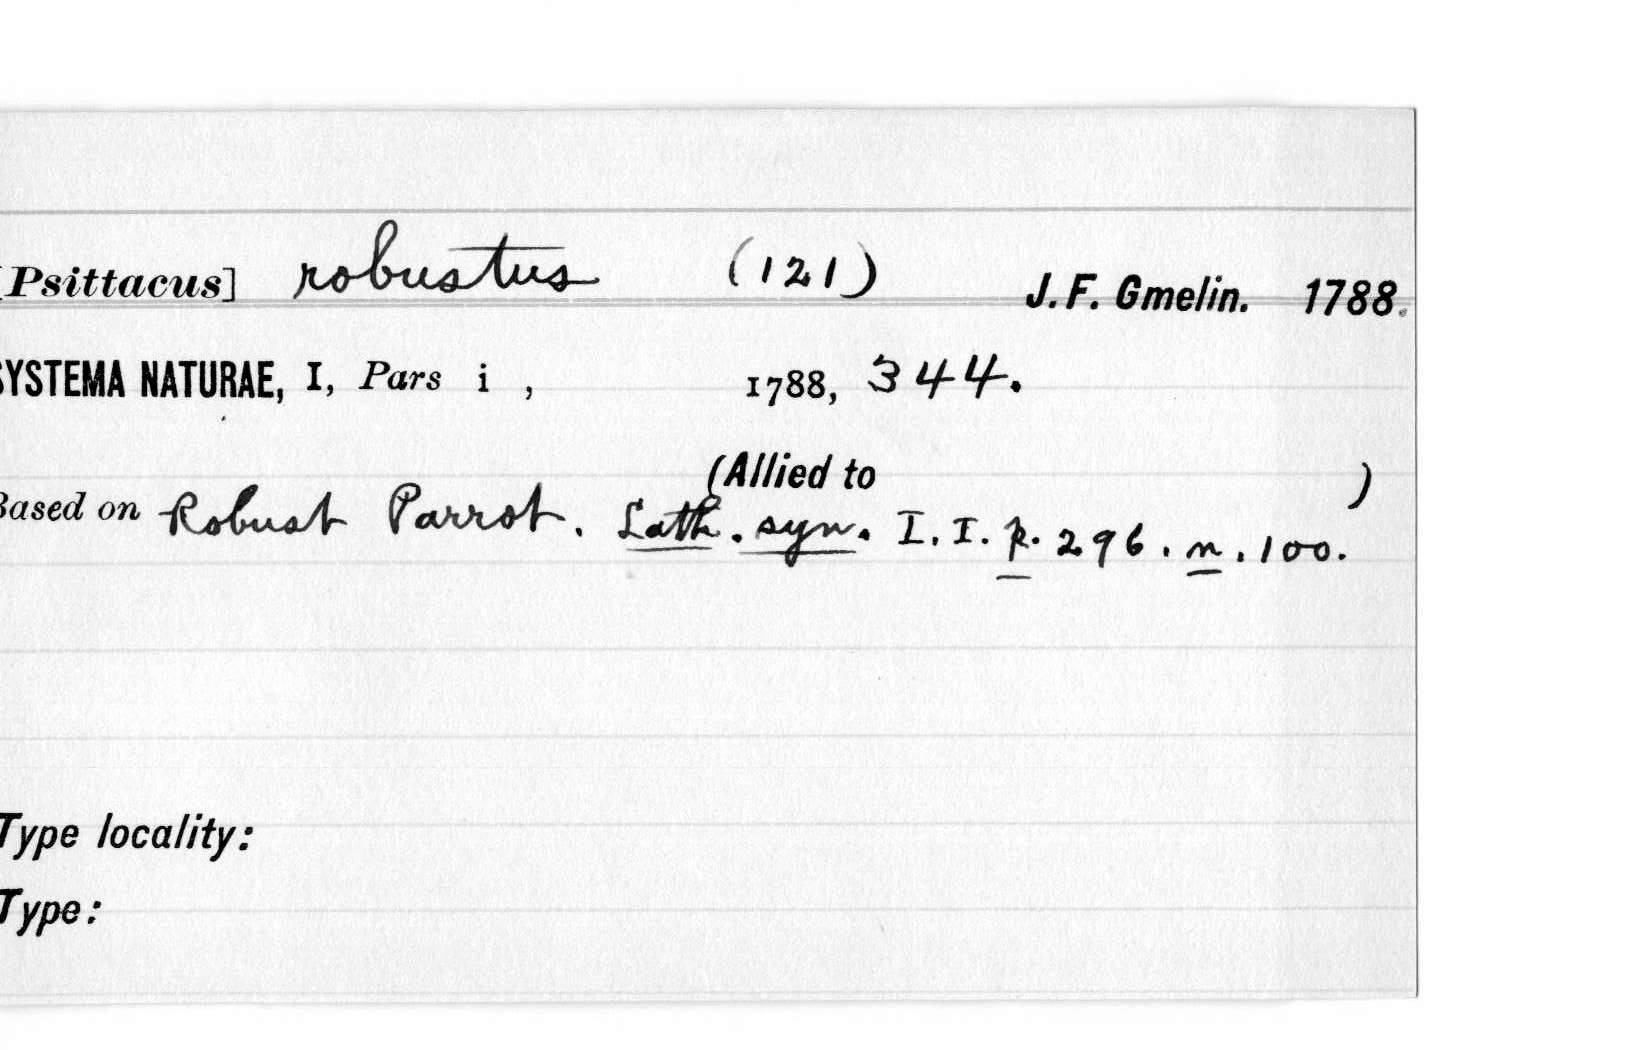 [Psittacus] robustus (121) J. F. Gmelin. 1788.
SYSTEMA NATURAE, I, Pars i , 1788, 344.
(Allied to )
Based on Robust Parrot. Lath. syn. I. I. p. 296. n. 100.
Type locality:
Type: